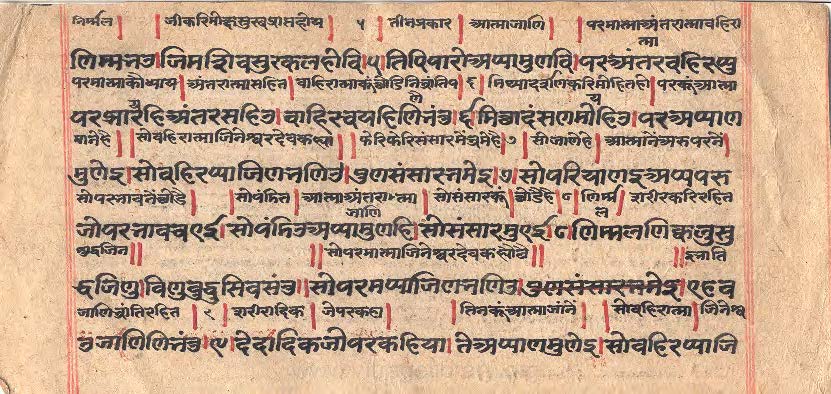 निर्मल | जीकरिमोक्षसुखप्राप्तहोय ५ तीनप्रकार | आत्माजाणि | परमात्माअंतरात्मावहिरा
त्मा
णिम्मलउ।जिमशिवसुरकलहेवि।५।तिपियारोअप्पामुणवि।परअंतरवहिरप्पु
परमात्माकौध्याय | अंतरात्मासहित | वाहिरात्माकंछोडिनिभ्रांतिप ६ | मिथ्यादर्शनकरिमोहितही | परकंआत्मा
परझायहिअंतरसहिउ।वाहिरचयहिणिभंतु।६मिछादंसणमोहिउ।परअप्पाण
मानेहै || सोवहिरात्माजिनेश्वरदेवकह्या || फेरिफेरिसंसारमेंभ्रमेहै ७ | सोजाणेहै | आत्मानेंअरुपरनें
मुणेइ।सोवहिरप्पाजिणभणिउ।पुणसंसारभमेइ।७।सोपरियाणइअप्पपरु
सोपरभावनेंछोडै | सोपंडित | आत्माअंतरात्मा | सोसंसारकंछोडैहै ८ | निर्म्म | शरीरकरिरहित
जाणि ल
जोपरभावचएई।सोपंडिउअप्पामुणहि।सोसंसारमुएई।८।णिम्मलणिक्कलुसु
शुद्धजिन || || सोपरमात्माजिनेश्वरदेवकह्यौछै || || इभांति
द्धजिणु।विणुवुदुसिवसंतु।सोपरमप्पाजिणभणिउ।पुणसंसारभमेइ।एहव
जाणिभ्रांतिरहित | ९ | शरीरादिक | जेपरकह्या | तिनकंआत्माजांनें | सोवहिरात्मा | जिनेश्व
उजाणिणिभंतु।९।देहादिकजोपरकहिया।तेअप्पाणमुणेइ।सोवहिरप्पाजि